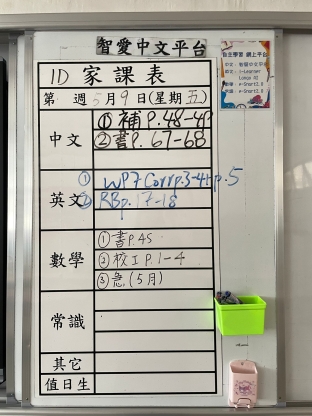 智愛中文平台
1D 家課表
第 週 5月9日(星期五)
中文
① 補P.48-49
② 書P.67-68
英文
① WP7 Corr p.3-4+p.5
② RBp.17-18
數學
① 書P.45
② 校工P.1-4
③ 急(5月)
常識
其它
值日生
自主學習 網上平台
中文：智愛中文平台